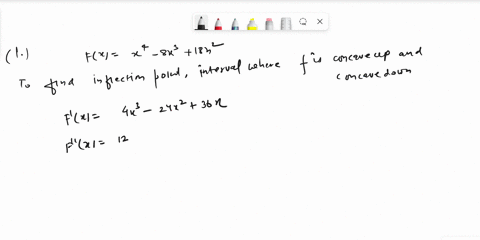 (1.) F(x) = x⁴ - 8x³ + 18x²
To find inflection point, interval where f is concave up and
concave down
F'(x) = 4x³ - 24x² + 36x
F''(x) = 12